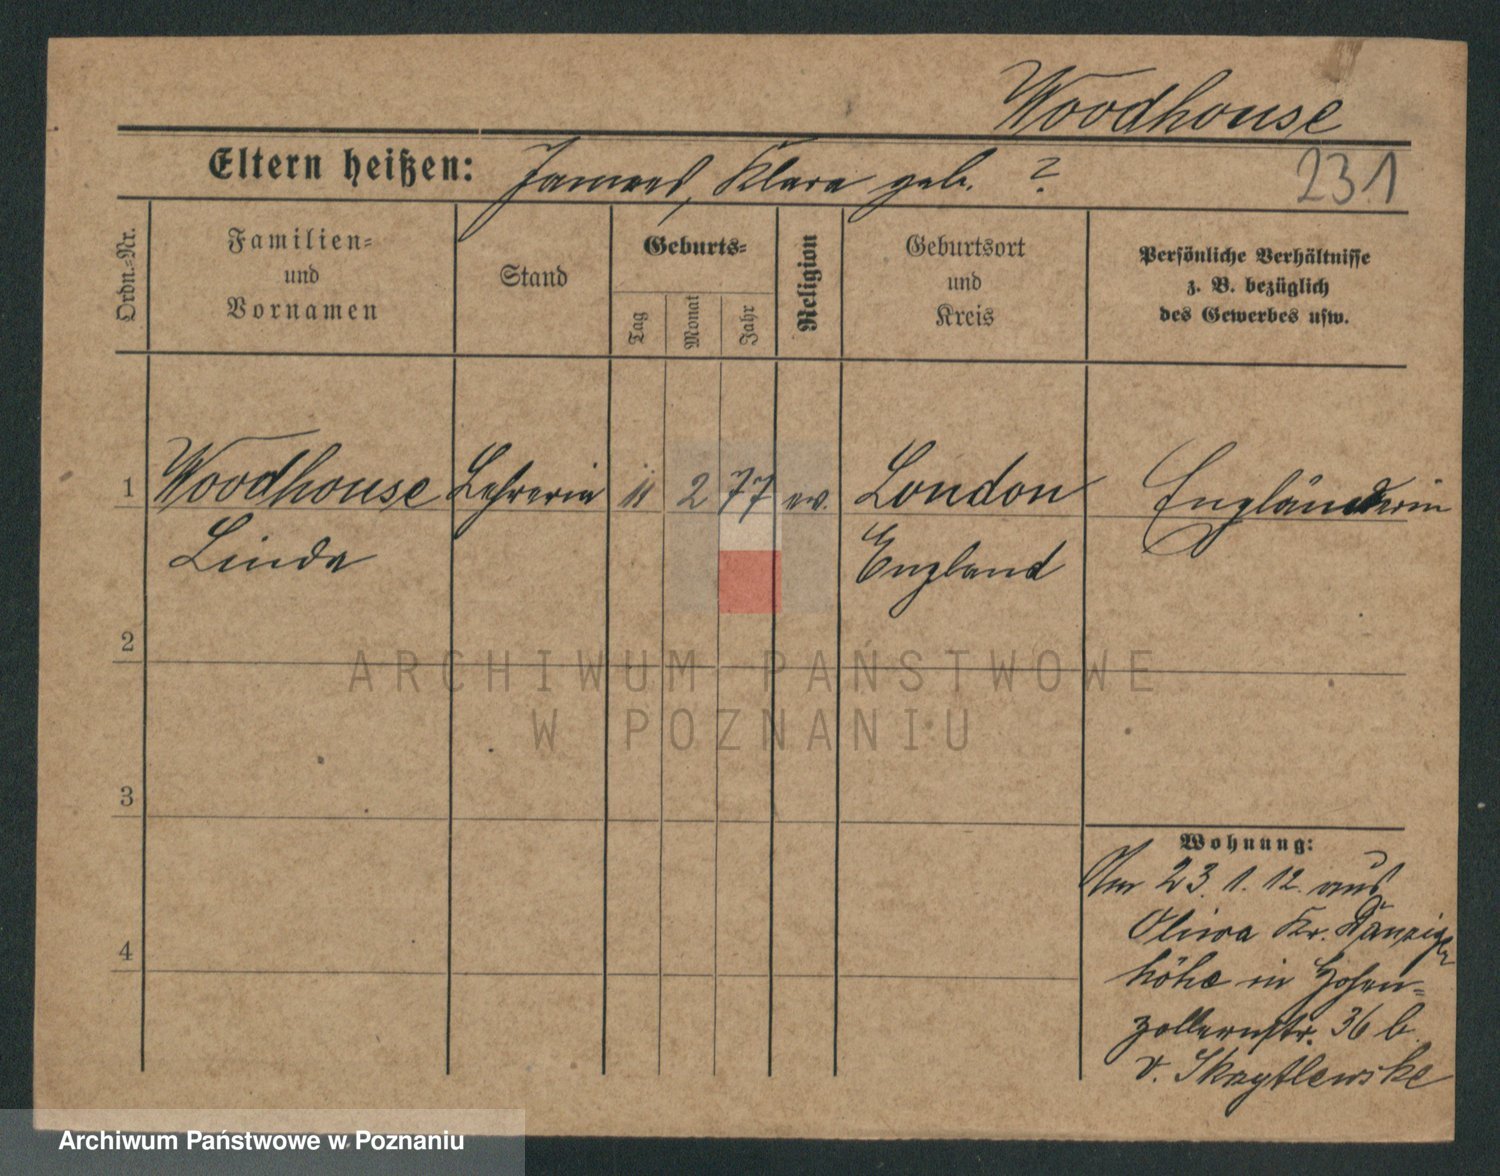 Woodhouse
Eltern heißen: James, Klara geb. ?
231
Ordn.-Nr.
Familien-
und
Vornamen
Stand
Geburts-
Tag
Monat
Jahr
Religion
Geburtsort
und
Kreis
Persönliche Verhältnisse
z. B. bezüglich
des Gewerbes usw.
1 Woodhouse Lehrerin 11 2 77 ev. London Engländerin
Linda England
2
ARCHIWUM PAŃSTWOWE
W POZNANIU
3
4
Wohnung:
Am 23. 1. 12. aus
Oliwa Kr. Danziger
höhe in Hohen-
zollernstr. 36 b.
v.
Archiwum Państwowe w Poznaniu